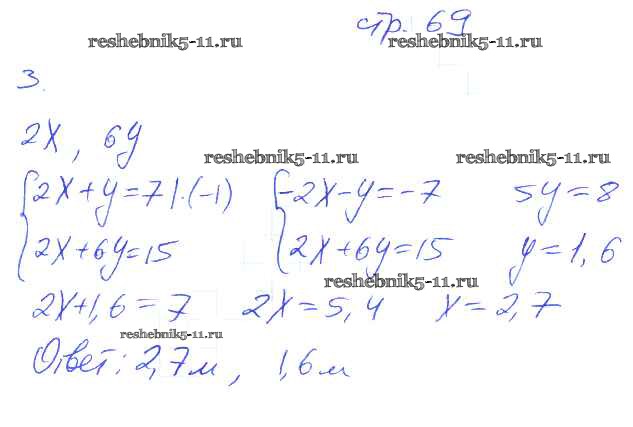 стр. 69
reshebnik5-11.ru reshebnik5-11.ru
3.
2x, 6y
reshebnik5-11.ru reshebnik5-11.ru
{2x+y=7|·(-1) {-2x-y=-7 5y=8
{2x+6y=15 {2x+6y=15 y=1,6
reshebnik5-11.ru
2x+1,6=7 2x=5,4 x=2,7
reshebnik5-11.ru
Ответ: 2,7м, 1,6м